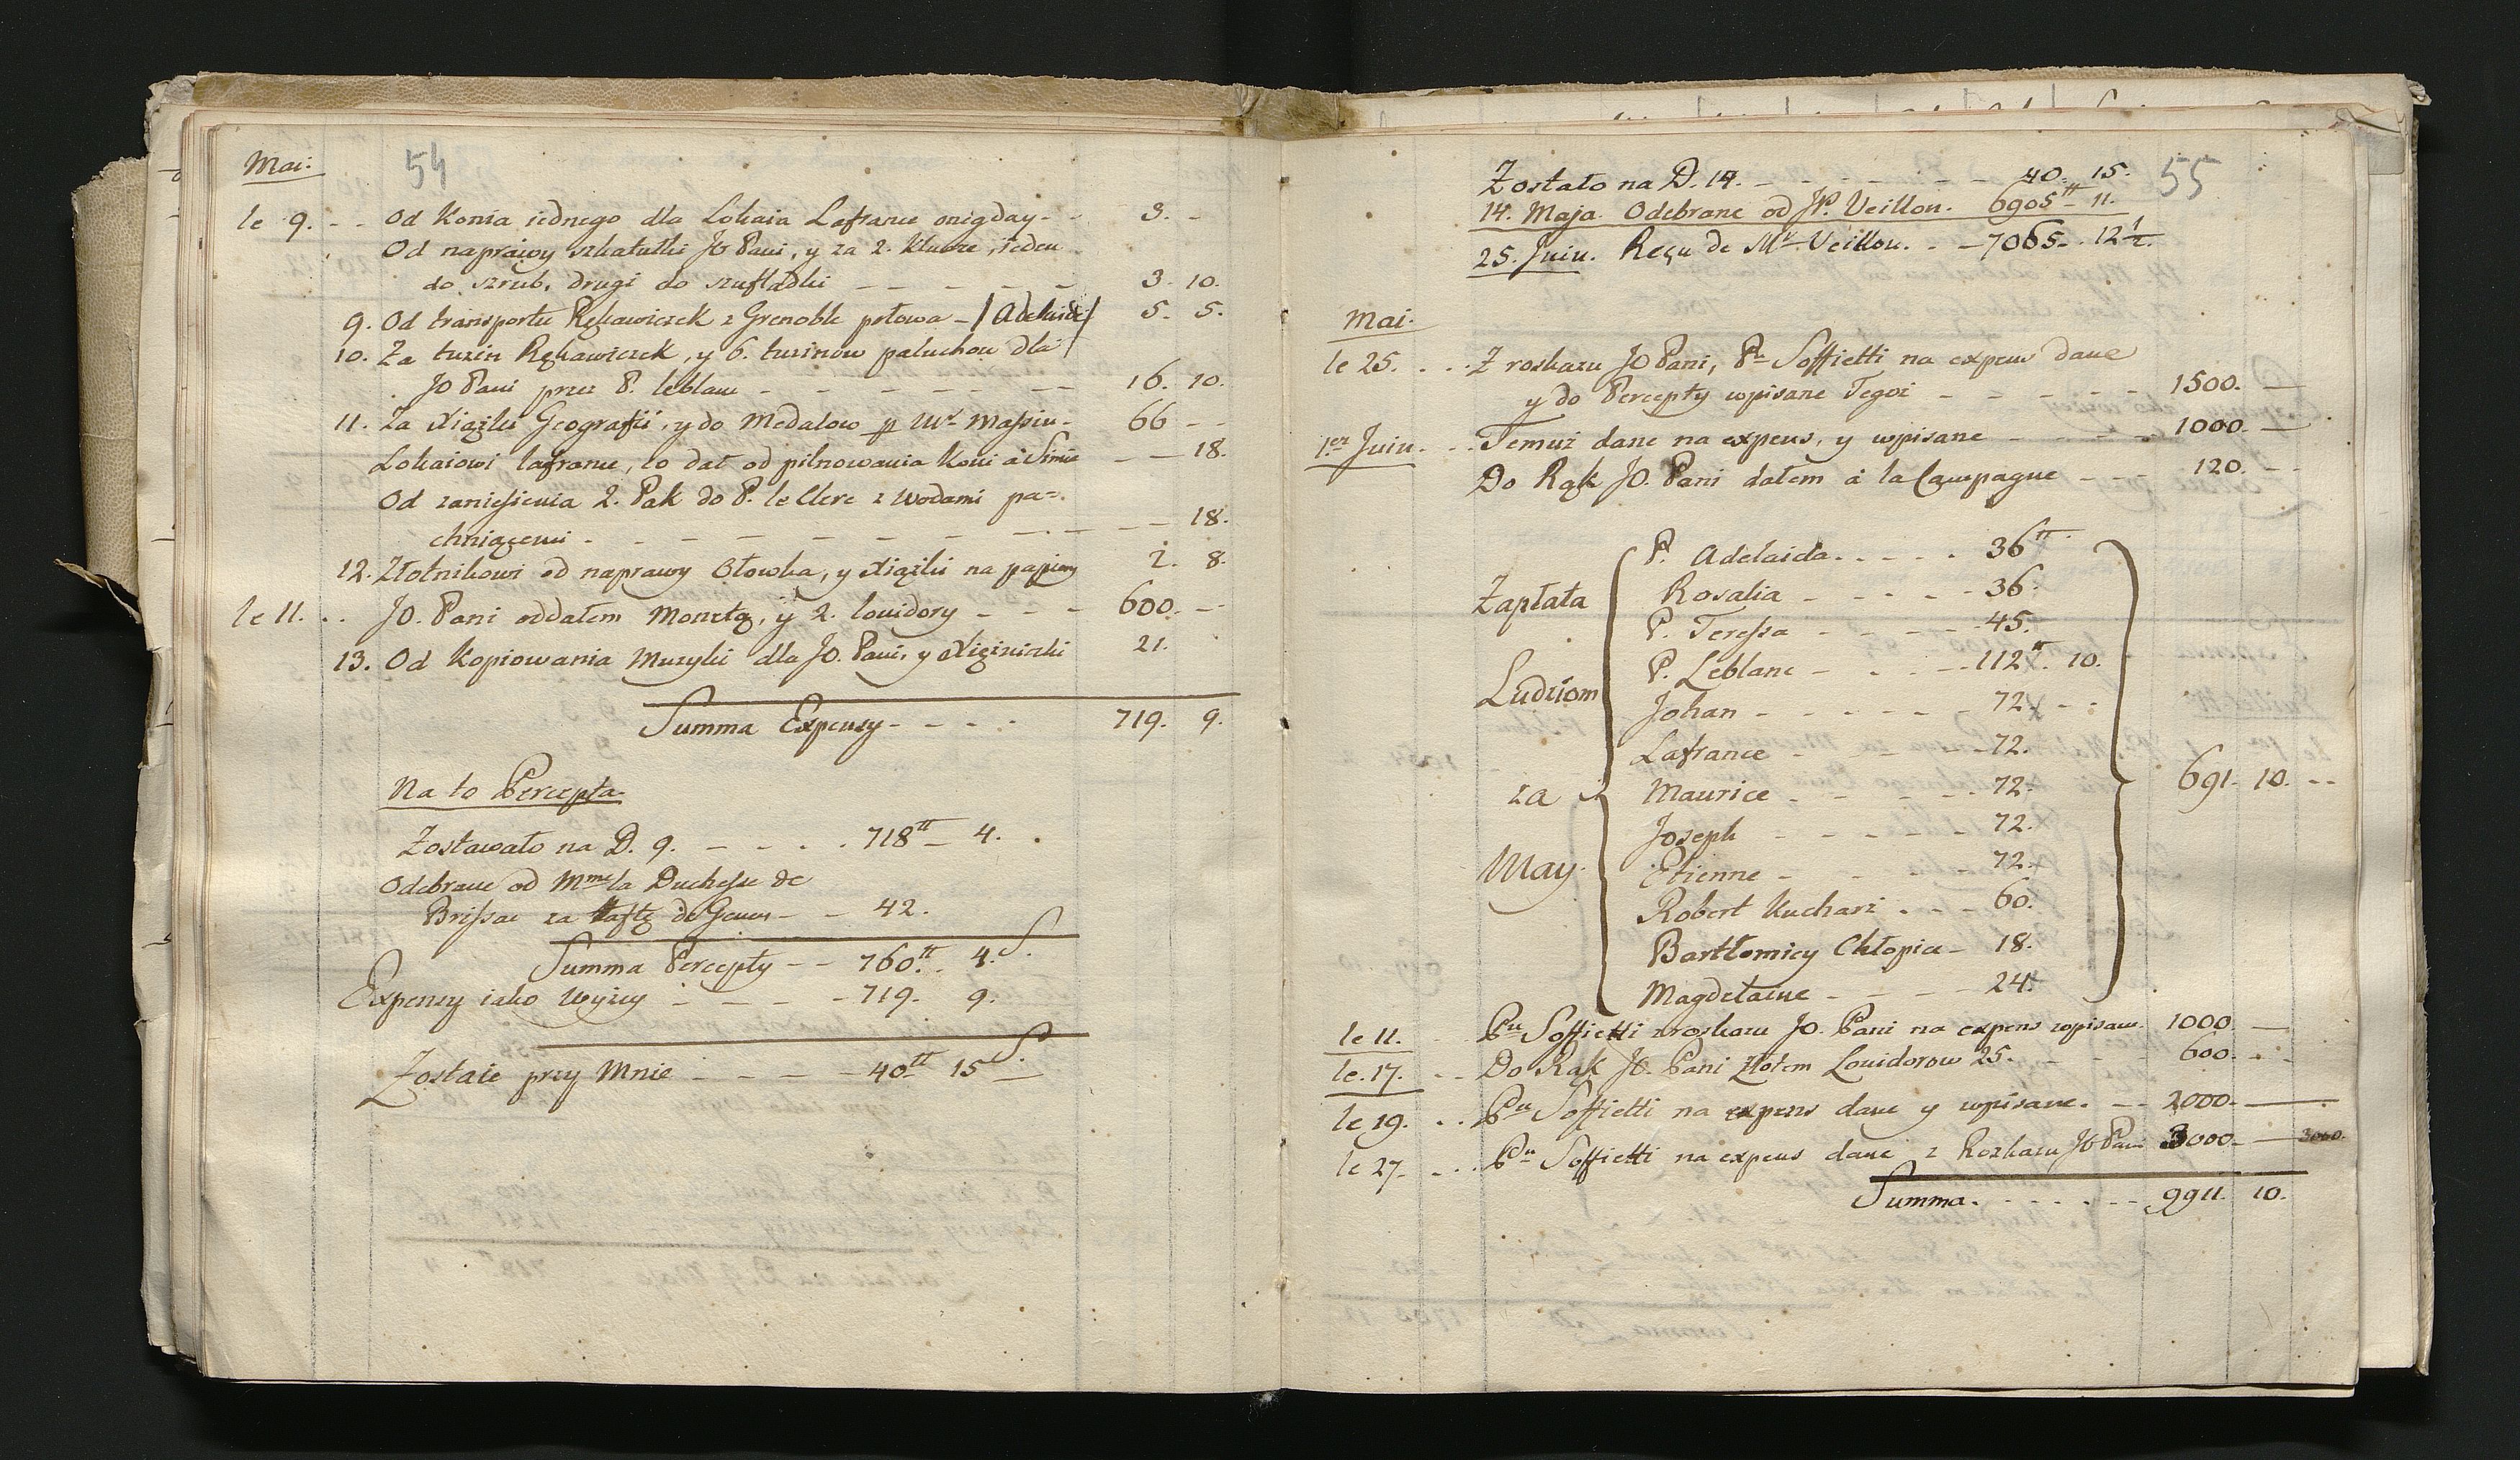 54
Mai:
le 9. - - Od Konia iednego dla Lokaia Lafrance onigday - - 3. -
Od naprawy szkatułki JO Pani, y za 2. Klucze, ieden
do szrub, drugi do szufladki - - - - - 3. 10.
9. Od transportu Rękawiczek z Grenoble połowa - /Adelaide/ 5. 5.
10. Za tuzin Rękawiczek, y 6. tuzinow paluchow dla
JO Pani przez P. leblanc - - - - - - 16. 10.
11. Za Xiążki Geografii, y do Medalow p Mr Massiu - 66 - -
Lokaiowi lafrance, co dał od pilnowania Koni à - - 18.
Od zaniesienia 2. Pak do P. le Clere z Wodami pa=
chniącemi - - - - - - - - - 18.
12. Złotnikowi od naprawy Ołowka, y Xiążki na papiery 2. 8.
le 11. . . JO. Pani oddałem Monetą, y 2. louidory - - - 600. - -
13. Od Kopiowania Muzyki dla JO. Pani, y Xiężniczki 21.
Summa Expensy - - - - 719. 9.
Na to Percepta
Zostawało na D. 9. - - - . . 718tt - 4. .
Odebrane od Mme la Duchesse de
Brissac za taftę de Genes - - 42.
Summa Percepty - - 760.tt. 4.S.
Expensy iako wyżey - - - - 719. 9.
Zostaie przy Mnie - - - - 40tt 15S.
55
Zostało na D. 14. - - - - - - - 40. 15.
14. Maja. Odebrane od JP. Veillon. 6905tt - 11.
25. Juin. Reçu de Mr Veillon. - - 7065. . 12 1/2.
Mai:
le 25. . . . Z roskazu JO Pani, Pu Soffietti na expens dane
y do Percepty wpisane Tegoż - - - - - 1500. -
1er Juin. . . Temuż dane na expens, y wpisane - - - - 1000. -
Do Rąk JO. Pani dałem à la Campagne - - - 120. - -
P. Adelaida. - - - . 36tt.
Zapłata Rosalia - - - - - 36.
P. Teressa - - - - - 45.
P. Leblanc - - . - - 112tt. 10.
Ludziom Johan - - - - - - 72. - -
Lafrance - - - - 72.
za Maurice - - - - . 72. 691. 10. - -
Joseph - - - - - 72.
May. Etienne - - - - 72.
Robert Kucharz . - - 60.
Bartłomiey Chłopiec - 18.
Magdelaine - - - - 24.
le 11. . Pu Soffietti z roskazu JO. Pani na expens wpisane. 1000. -
le. 17. . - - Do Rąk JO. Pani złotem Louidorow 25. - - - 600. - -
le 19. . . Pu Soffietti na expens dane y wpisane. - - 2000. -
le 27. . . . Pu Soffietti na expens dane z Rozkazu JO Pani 3000. - 3000.
Summa. - - - - - - 9911. 10.